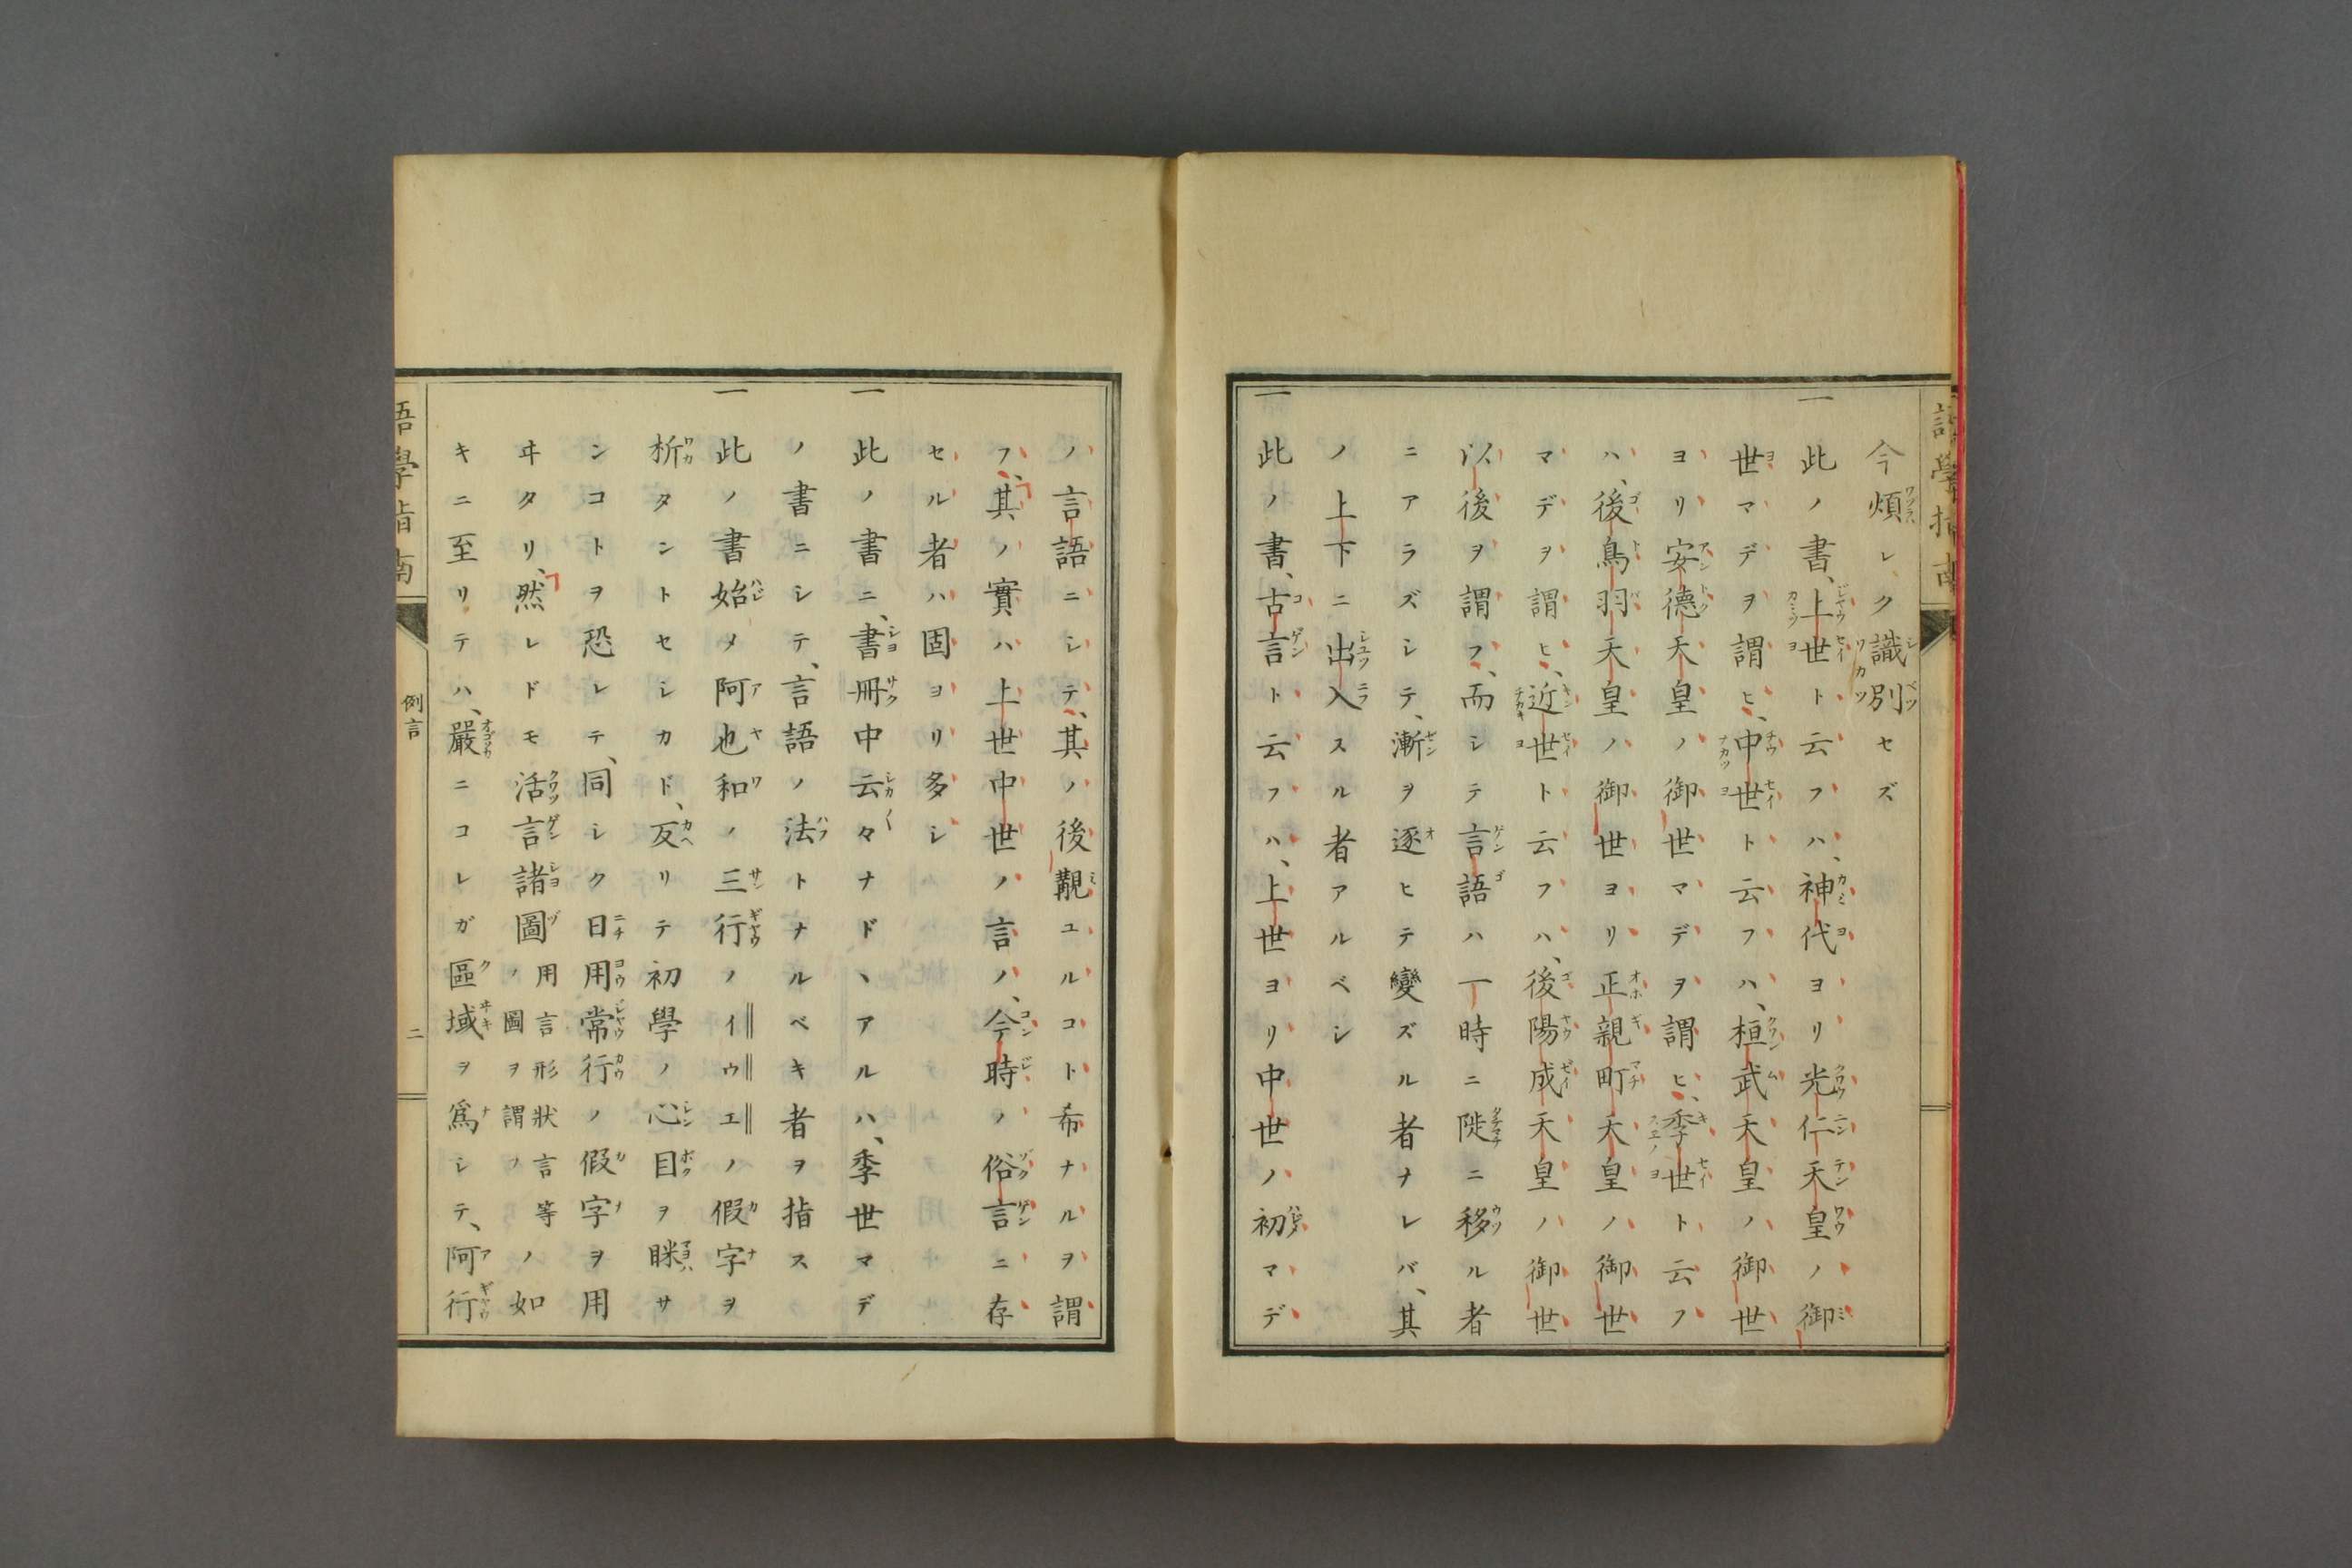 今煩レク識別セズ
一此ノ書、上世ト云フハ、神代ヨリ光仁天皇ノ御
世マデヲ謂ヒ、中世ト云フハ、桓武天皇ノ御世
ヨリ安德天皇ノ御世マデヲ謂ヒ、季世ト云フ
ハ、後鳥羽天皇ノ御世ヨリ正親町天皇ノ御世
マデヲ謂ヒ、近世ト云フハ、後陽成天皇ノ御世
以後ヲ謂フ、而シテ言語ハ一時ニ陡ニ移ル者
ニアラズシテ、漸ヲ逐ヒテ變ズル者ナレバ、其
ノ上下ニ出入スル者アルベシ
一此ノ書、古言ト云フハ、上世ヨリ中世ノ初マデ
ノ言語ニシテ、其ノ後覯ユルコト希ナルヲ謂
フ、其ノ實ハ上世中世ノ言ノ、今時ノ俗言ニ存
セル者ハ固ヨリ多シ
一此ノ書ニ、書冊中云々ナドヽアルハ、季世マデ
ノ書ニシテ、言語ノ法トナルベキ者ヲ指ス
一此ノ書始メ阿也和ノ三行ノイウエノ假字ヲ
析タントセシカド、反リテ初學ノ心目ヲ眯サ
ンコトヲ恐レテ、同シク日用常行ノ假字ヲ用
ヰタリ、然レドモ活言諸圖用言形狀言等ノ圖ヲ謂フノ如
キニ至リテハ、嚴ニコレガ區域ヲ爲シテ、阿行
語學指南
例言
二